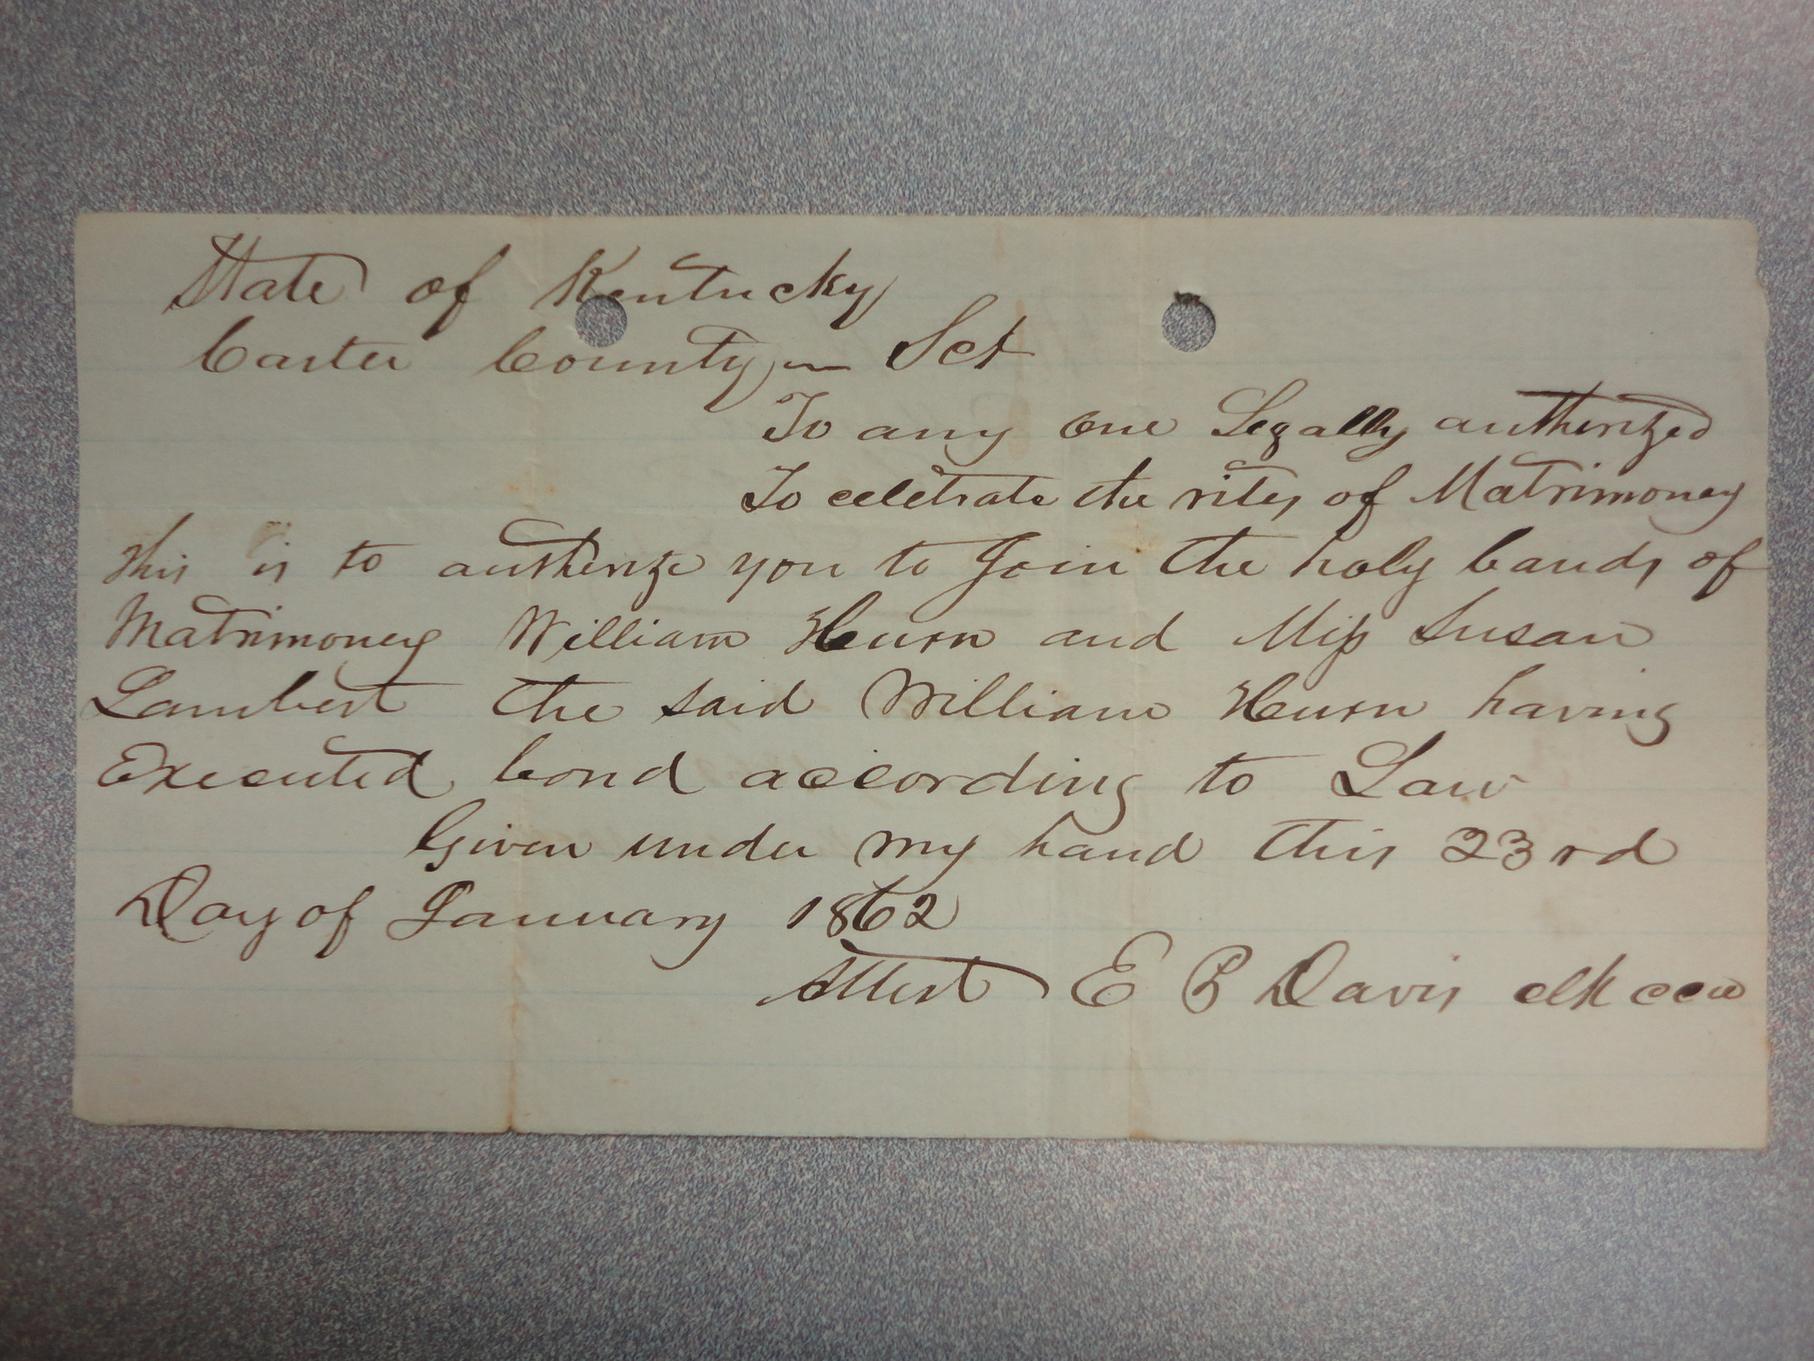 State of Kentucky
Carter County Sct
To any one Legally authorized
To celebrate the rites of Matrimoney
This is to authorize you to Join the holy bands of
Matrimoney William Hurn and Miss Susan
Lambert the said William Hurn having
Executed bond according to Law
Given under my hand this 23rd
Day of January 1862
Attest E B Davis clk